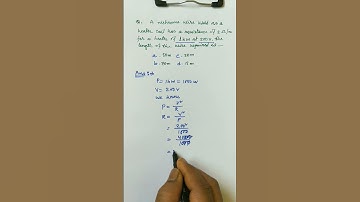 Q. A nichrome wire used as a
heater coil has a resistance of 2 Ω/m
for a heater of 1kW at 200V, the
length of the wire required is -
a. 80m c. 20m
b. 30m d. 10m
P = 1kW = 1000 W
V = 200V
we know
P = V²/R
R = V²/P
= 200²/1000
=
=